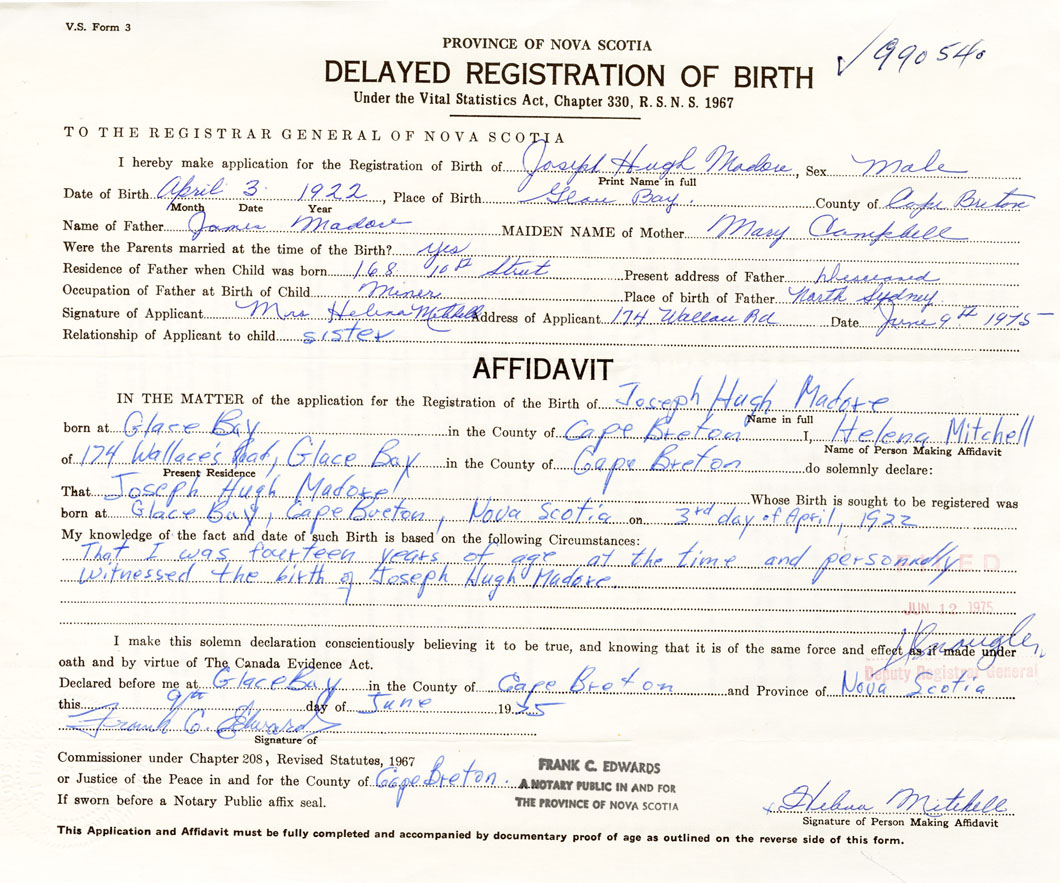 V.S. Form 3
PROVINCE OF NOVA SCOTIA
✓ 990540
DELAYED REGISTRATION OF BIRTH
Under the Vital Statistics Act, Chapter 330, R.S.N.S. 1967
TO THE REGISTRAR GENERAL OF NOVA SCOTIA
I hereby make application for the Registration of Birth of Joseph Hugh Madore, Sex Male
Print Name in full
Date of Birth April 3 1922, Place of Birth Glace Bay. County of Cape Breton
Month Date Year
Name of Father James Madore MAIDEN NAME of Mother Mary Campbell
Were the Parents married at the time of the Birth? yes
Residence of Father when Child was born 168 10th Street Present address of Father
Occupation of Father at Birth of Child Miner Place of birth of Father North Sydney
Signature of Applicant Mrs Helena Mitchell Address of Applicant 174 Rd Date June 9th 1975
Relationship of Applicant to child sister
AFFIDAVIT
IN THE MATTER of the application for the Registration of the Birth of Joseph Hugh Madore
Name in full
born at Glace Bay in the County of Cape Breton I, Helena Mitchell
Name of Person Making Affidavit
of 174 Wallace's Road, Glace Bay in the County of Cape Breton do solemnly declare:
Present Residence
That Joseph Hugh Madore Whose Birth is sought to be registered was
born at Glace Bay, Cape Breton, Nova Scotia on 3rd day of April, 1922
My knowledge of the fact and date of such Birth is based on the following Circumstances:
That I was fourteen years of age at the time and personnally
witnessed the birth of Joseph Hugh Madore
JUN 12 1975
I make this solemn declaration conscientiously believing it to be true, and knowing that it is of the same force and effect as if made under
oath and by virtue of The Canada Evidence Act.
Deputy Registrar General
Declared before me at Glace Bay in the County of Cape Breton and Province of Nova Scotia
this 9th day of June 19 75
Frank C. Edwards
Signature of
Commissioner under Chapter 208, Revised Statutes, 1967
or Justice of the Peace in and for the County of Cape Breton.
If sworn before a Notary Public affix seal.
FRANK C. EDWARDS
A NOTARY PUBLIC IN AND FOR
THE PROVINCE OF NOVA SCOTIA
x Helena Mitchell
Signature of Person Making Affidavit
This Application and Affidavit must be fully completed and accompanied by documentary proof of age as outlined on the reverse side of this form.